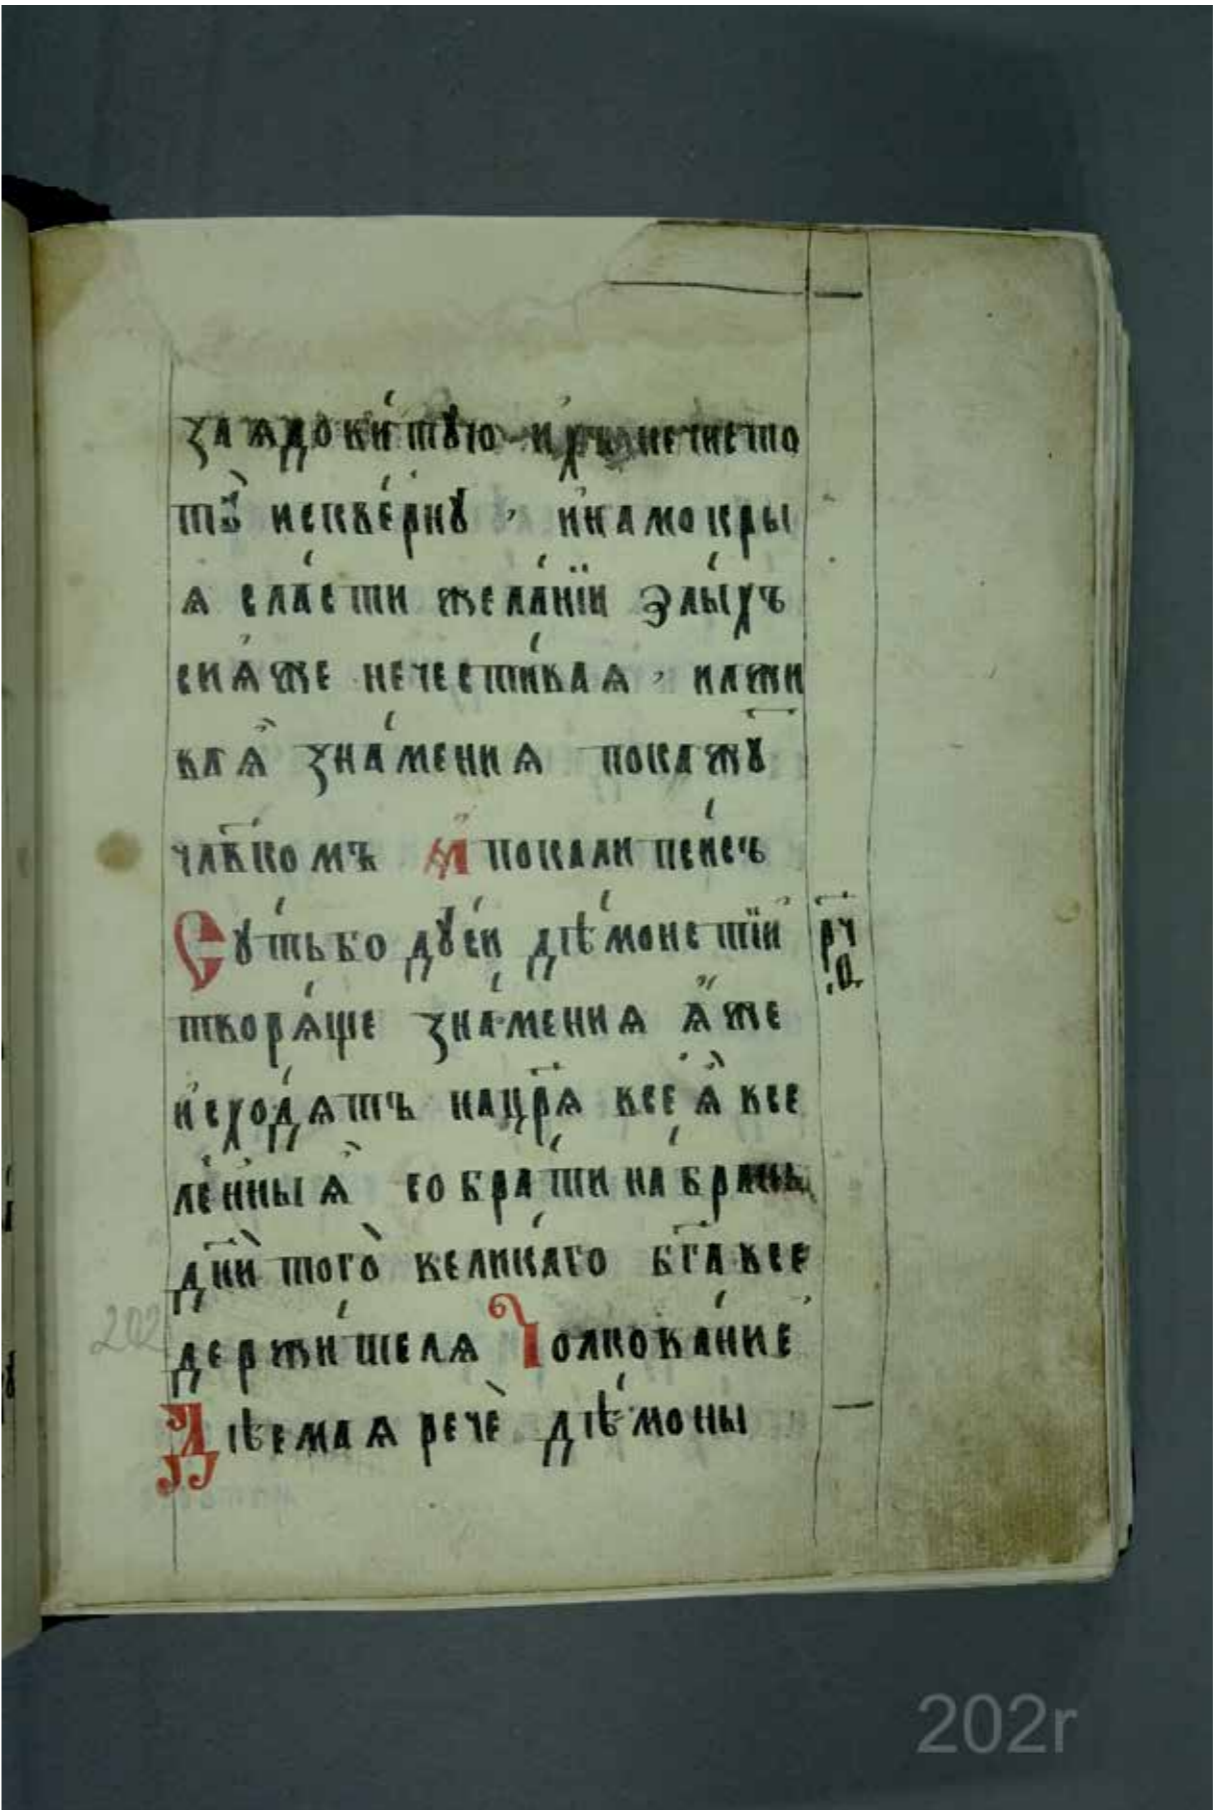 заѧдови́тꙋю и҆хъ нечисто
тꙋ̀ искве́рнꙋ , и҆на мокры
ѧ сла́сти жела́нїи ѕлы́хъ
сиѧ́же нечести́ваѧ , и лжи
ваѧ҆̑ зна́мениѧ покажꙋ́
чл҃вкомъ А҆покали́псисъ
Сꙋ́тьбо дꙋ́си дїѣ́монстїи
творѧ́ще зна́мениѧ ѧ҆̀же
и҆схо́дѧтъ нацр҃ѧ всеѧ҆̑ все
ле́нныѧ҆̑ собра́ти на бра́нь
дн҃и̑ того̀ вели́каго бг҃а все
держи́телѧ Толкова́ние
Дїѣемаѧ рече̏ дїѣ́моны
рч
.а.
202
202r